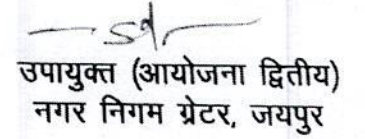 उपायुक्त (आयोजना द्वितीय)
नगर निगम ग्रेटर, जयपुर